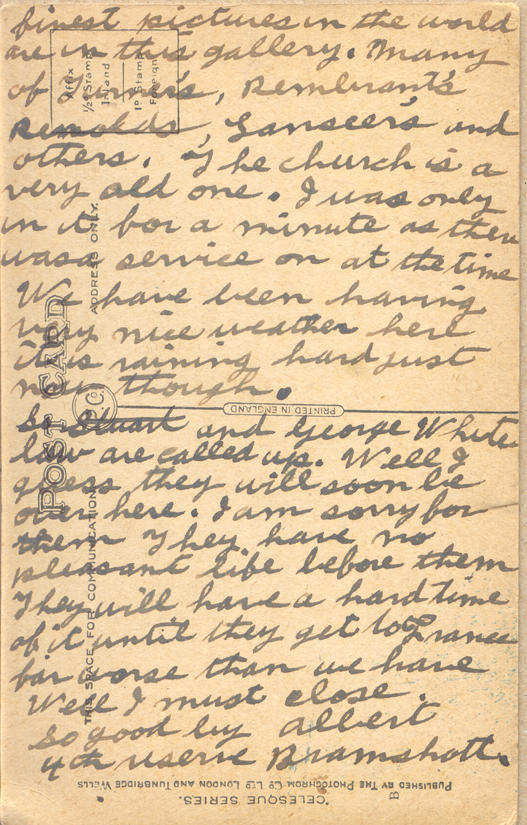 finest pictures in the world
are in this gallery. Many
of Turner's, Rembrant's
Renolds, Lanseer's and
others. The church is a
very old one. I was only
in it for a minute as there
was a service on at the time
We have been having
very nice weather here
it is raining hard just
now though.
So Stuart and George White
law are called up. Well I
guess they will soon be
over here. I am sorry for
them They have no
pleasant life before them
They will have a hard time
of it until they get to France
far worse than we have
Well I must close.
So good by Albert
4th reserve Bramshott.
POST CARD
THIS SPACE FOR COMMUNICATION
ADDRESS ONLY.
Affix
½d Stamp
Inland
1d Stamp
Foreign
PRINTED IN ENGLAND
"CELESQUE SERIES."
PUBLISHED BY THE PHOTOCHROM CO. LTD. LONDON AND TUNBRIDGE WELLS
B